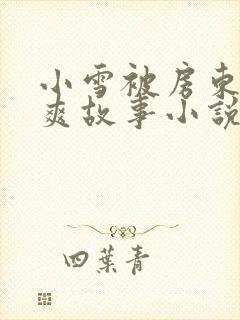 小雪被房东
爽故事小説
四葉青